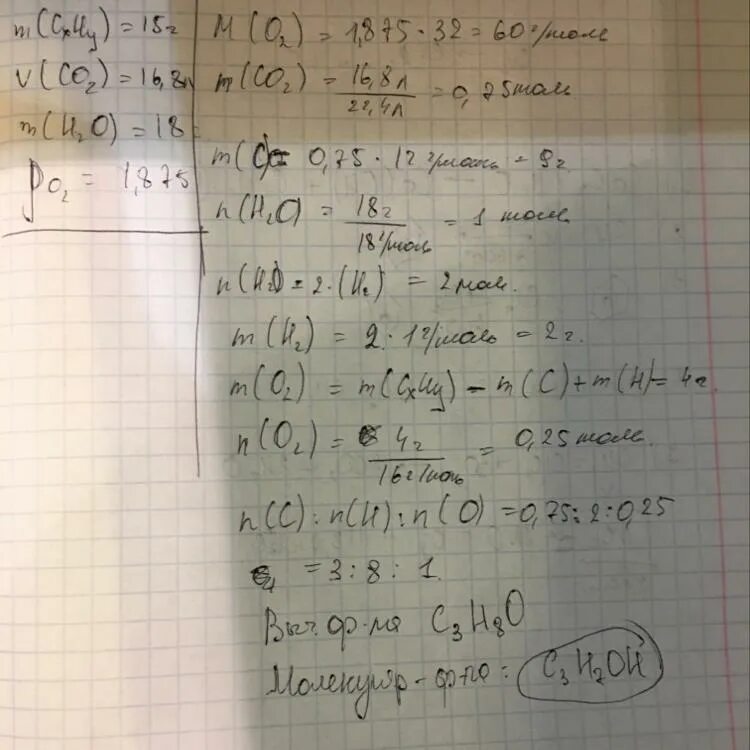 m(CxHy) = 15г
V(CO₂) = 16,8л
m(H₂O) = 18
Dо₂ = 1,875
M(O₂) = 1,875 · 32 = 60 г/моль
m(CO₂) = 16,8л / 22,4л = 0,75 моль
m(C) = 0,75 · 12 г/моль = 9г
n(H₂O) = 18г / 18 г/моль = 1 моль
n(H₂) = 2 · (H₂) = 2 мол.
m(H₂) = 2 · 1 г/моль = 2г.
m(O₂) = m(CxHy) - m(C) + m(H) = 4г
n(O₂) = 4г / 16 г/моль = 0,25 моль.
n(C) : n(H) : n(O) = 0,75 : 2 : 0,25
= 3 : 8 : 1.
Выч. ф-ла C₃H₈O
Молекуляр-ф-ла : C₃H₇OH